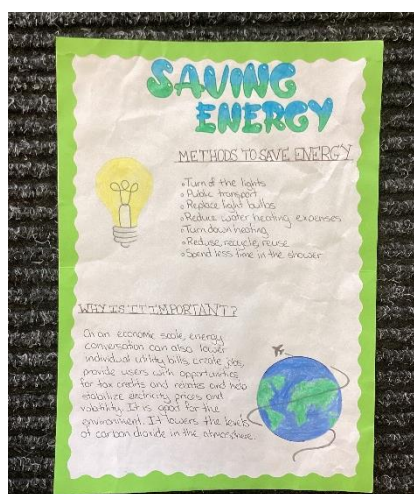 SAVING
ENERGY
METHODS TO SAVE ENERGY
• Turn of the lights
• Public transport
• Replace light bulbs
• Reduce water heating expenses
• Turn down heating
• Reduse, recycle, reuse
• Spend less time in the shower
WHY IS IT IMPORTANT?
On an economic scale, energy
conversation can also lower
individual utility bills create jobs,
provide users with opportunities
for tax credits and rebates and help
stabilize electricity prices and
volatility. It is good for the
environment. It lowers the levels
of carbon dioxide in the atmosphere.